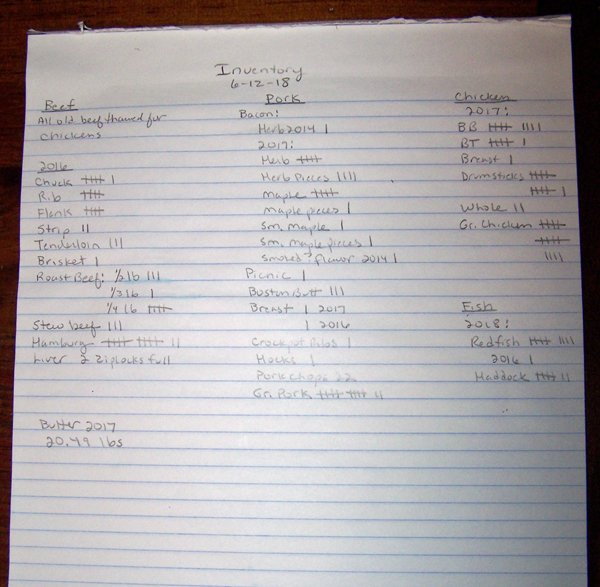 Inventory
6-12-18
Beef
All old beef thawed for
chickens
2016
Chuck 卌 |
Rib 卌
Flank 卌
Strip ||
Tenderloin |||
Brisket |
Roast Beef: 1/2 lb |||
1/3 lb |
1/4 lb 卌
Stew beef |||
Hamburg 卌 卌 ||
Liver 2 Ziplocks full
Butter 2017
20.49 lbs
Pork
Bacon:
Herb 2014 |
2017:
Herb 卌
Herb Pieces ||||
Maple 卌
Maple pieces |
Sm. Maple |
Sm. Maple pieces |
Smoked Flavor 2014 |
Picnic |
Boston Butt |||
Breast | 2017
| 2016
Crockpot Ribs |
Hocks |
Pork Chops 22
Gr. Pork 卌 卌 ||
Chicken
2017:
BB 卌 ||||
BT 卌 |
Breast |
Drumsticks 卌
卌 |
Whole ||
Gr. Chicken 卌
卌
||||
Fish
2018:
Redfish 卌 ||||
2016 |
Haddock 卌 ||